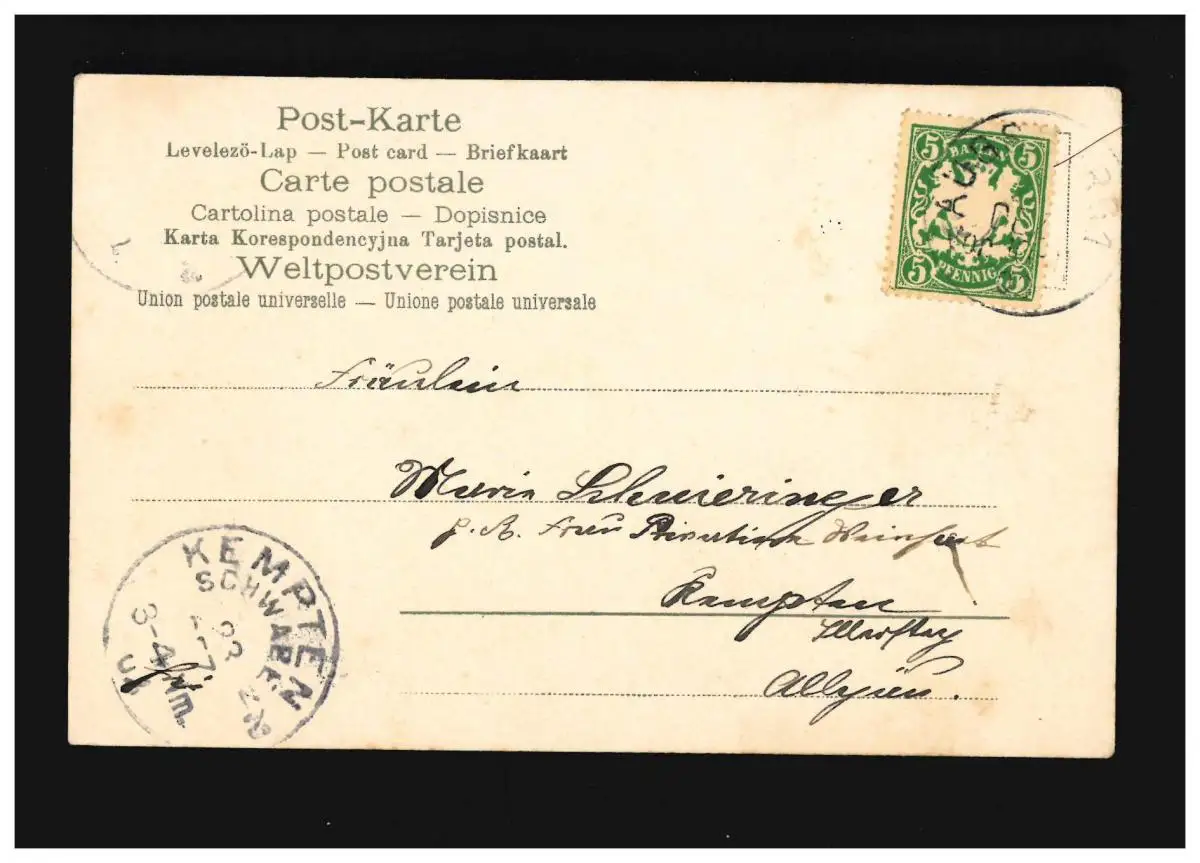 Post-Karte
Levelezö-Lap — Post card — Briefkaart
Carte postale
Cartolina postale — Dopisnice
Karta Korespondencyjna Tarjeta postal.
Weltpostverein
Union postale universelle — Unione postale universale
5 BAYERN 5
5 PFENNIG 5
Fräulein
Marie Schmieringer
p. A. Frau Privatiere
Kempten
Allgäu.
KEMPTEN
SCHWABEN
3-4